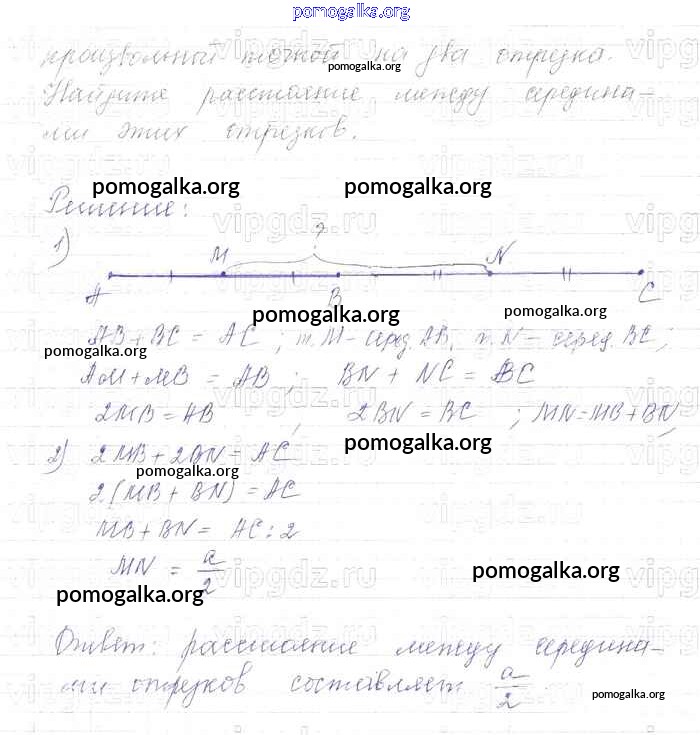 pomogalka.org
произвольной точкой на два отрезка.
pomogalka.org
Найдите расстояние между середина-
ми этих отрезков.
pomogalka.org pomogalka.org
Решение:
vipgdz.ru
1)
?
M N
A B C
pomogalka.org pomogalka.org
AB + BC = AC ; т. M - серед. AB, т. N - серед. BC;
pomogalka.org
AM + MB = AB ; BN + NC = BC
2MB = AB , 2BN = BC ; MN = MB + BN,
pomogalka.org
2) 2MB + 2BN = AC
pomogalka.org
2(MB + BN) = AC
MB + BN = AC : 2
MN = a/2
vipgdz.ru
pomogalka.org
pomogalka.org
Ответ: расстояние между середина-
ми отрезков составляет a/2
pomogalka.org